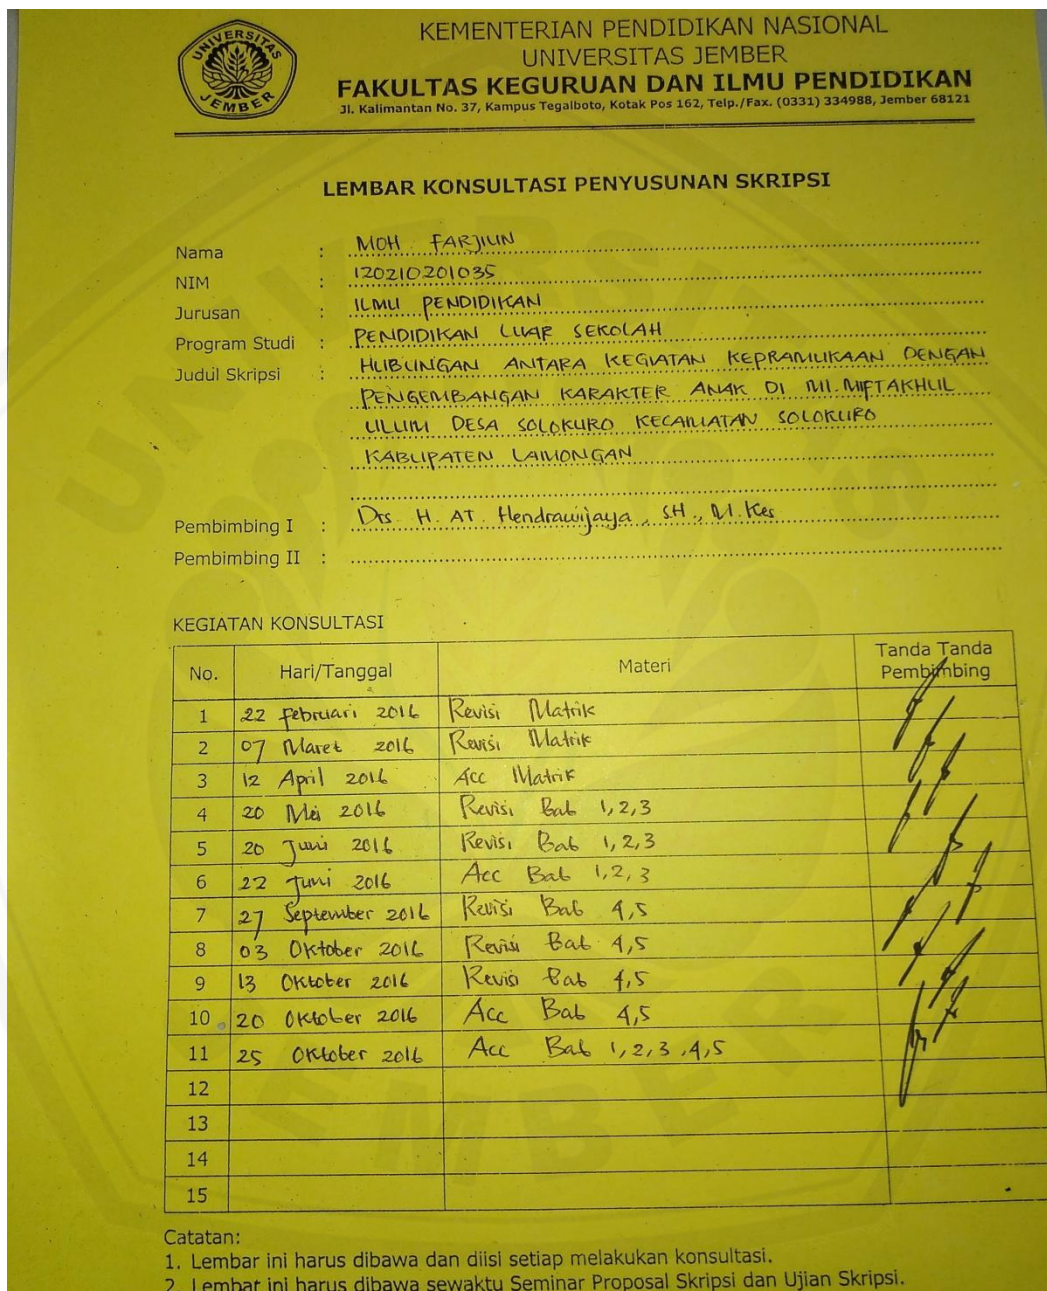 UNIVERSITAS JEMBER
KEMENTERIAN PENDIDIKAN NASIONAL
UNIVERSITAS JEMBER
FAKULTAS KEGURUAN DAN ILMU PENDIDIKAN
Jl. Kalimantan No. 37, Kampus Tegalboto, Kotak Pos 162, Telp./Fax. (0331) 334988, Jember 68121
LEMBAR KONSULTASI PENYUSUNAN SKRIPSI
Nama : MOH. FARJIUN
NIM : 120210201035
Jurusan : ILMU PENDIDIKAN
Program Studi : PENDIDIKAN LUAR SEKOLAH
Judul Skripsi : HUBUNGAN ANTARA KEGIATAN KEPRAMUKAAN DENGAN
PENGEMBANGAN KARAKTER ANAK DI MI. MIFTAKHUL
ULUM DESA SOLOKURO KECAMATAN SOLOKURO
KABUPATEN LAMONGAN
Pembimbing I : Drs. H. AT. Hendrawijaya, SH., M.Kes
Pembimbing II :
KEGIATAN KONSULTASI
No. Hari/Tanggal Materi Tanda Tanda Pembimbing
1 22 Februari 2016 Revisi Matrik
2 07 Maret 2016 Revisi Matrik
3 12 April 2016 Acc Matrik
4 20 Mei 2016 Revisi Bab 1,2,3
5 20 Juni 2016 Revisi Bab 1,2,3
6 22 Juni 2016 Acc Bab 1,2,3
7 27 September 2016 Revisi Bab 4,5
8 03 Oktober 2016 Revisi Bab 4,5
9 13 Oktober 2016 Revisi Bab 4,5
10 20 Oktober 2016 Acc Bab 4,5
11 25 Oktober 2016 Acc Bab 1,2,3,4,5
12
13
14
15
Catatan:
1. Lembar ini harus dibawa dan diisi setiap melakukan konsultasi.
2. Lembar ini harus dibawa sewaktu Seminar Proposal Skripsi dan Ujian Skripsi.